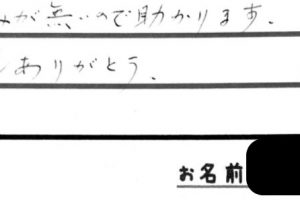 が無いので助かります。
ありがとう。
お名前